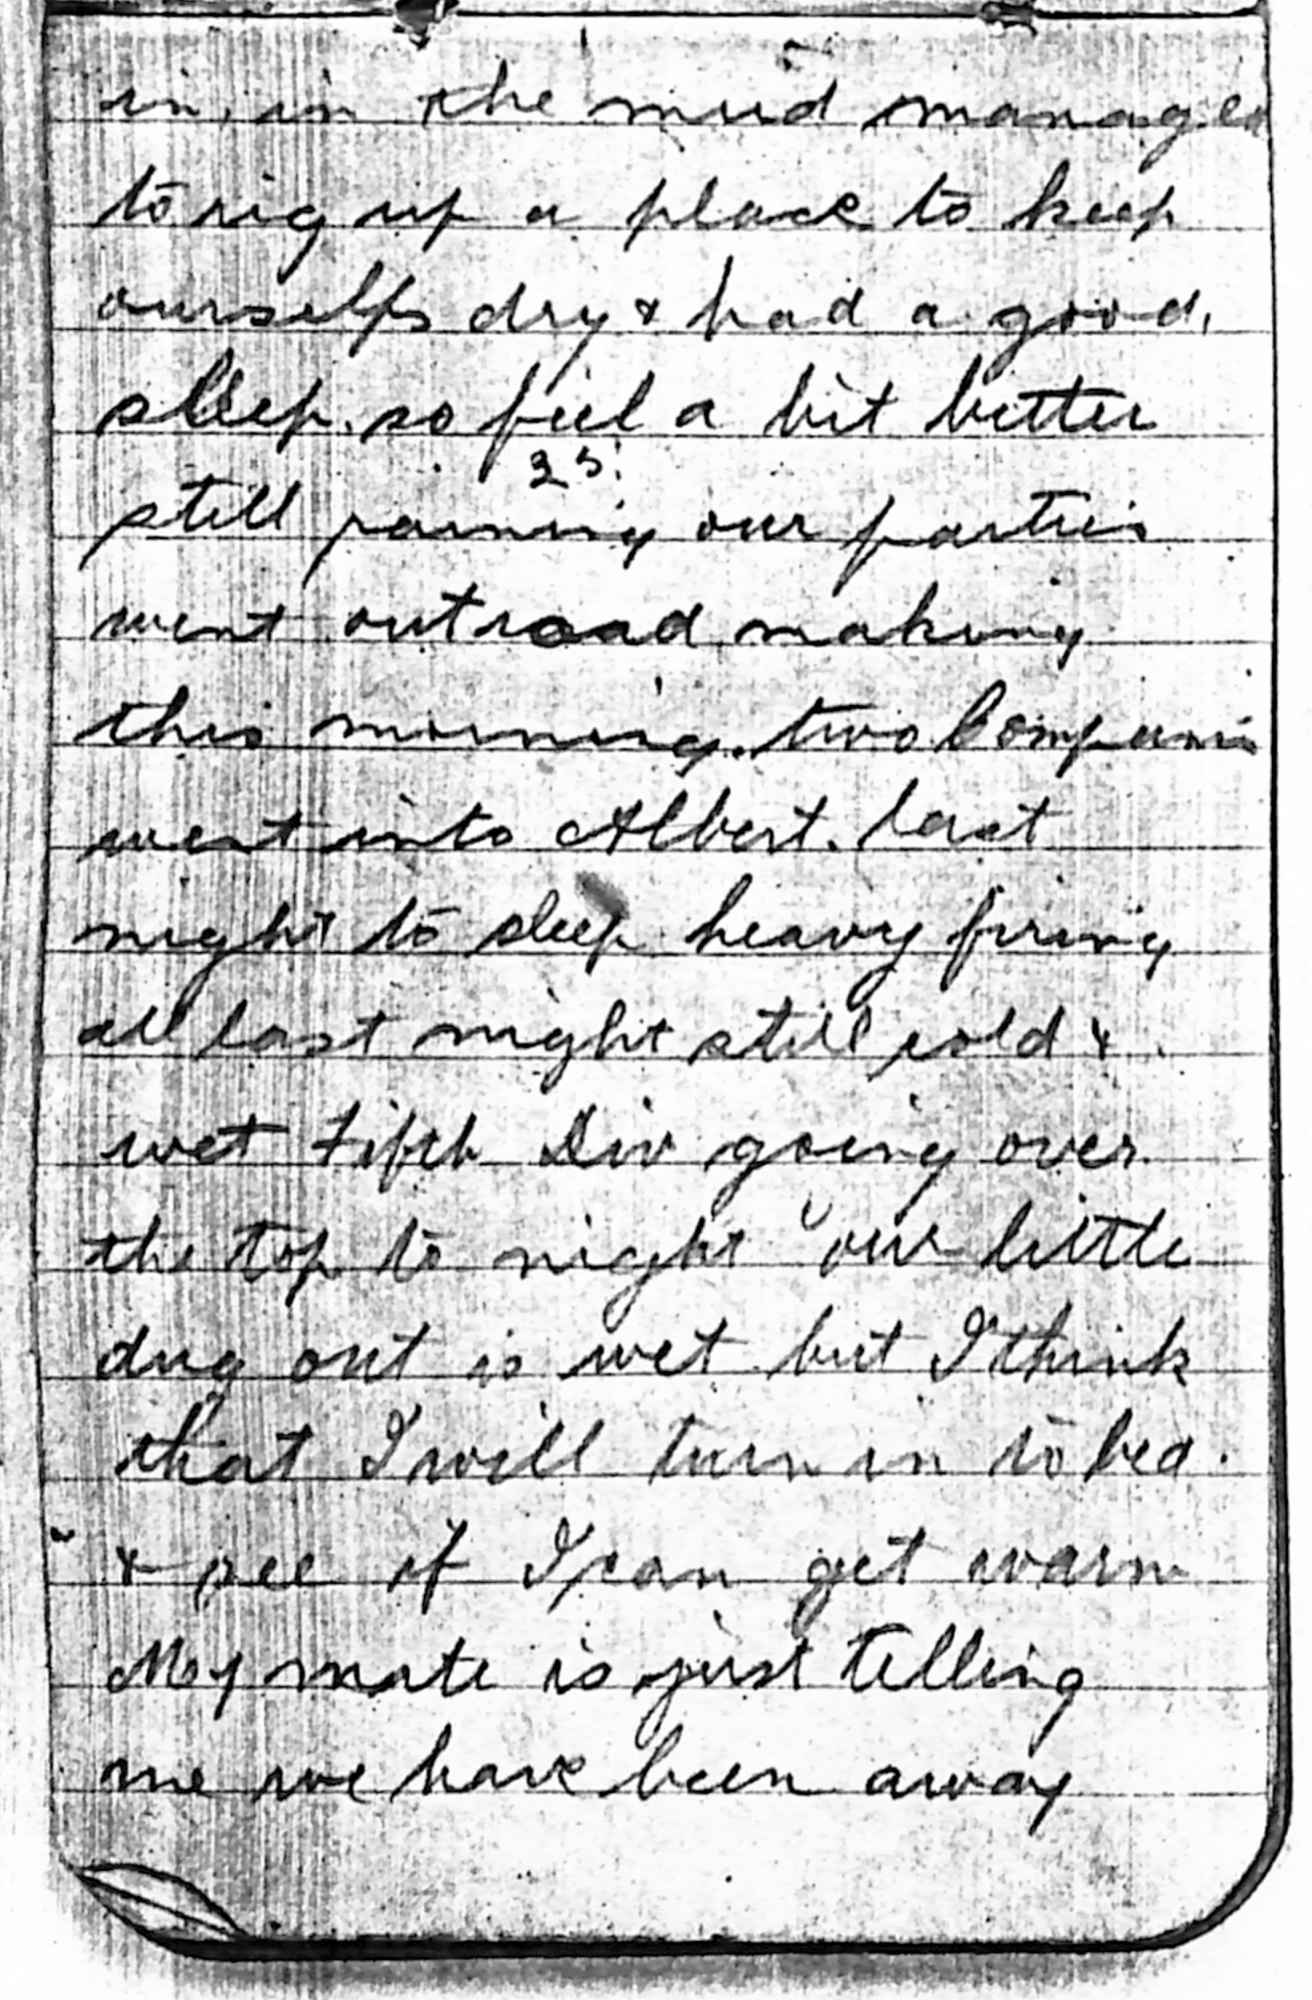 in, in the mud managed
to rig up a place to keep
ourselfs dry & had a good,
sleep. so feel a bit better
25
still raining our parties
went out road making
this morning. two Companies
went into Albert. last
night to sleep heavy firing
all last night still cold &
wet Fifth Div going over
the top to night our little
dug out is wet but I think
that I will turn in to bed.
& see if I can get warm
My mate is just telling
me we have been away